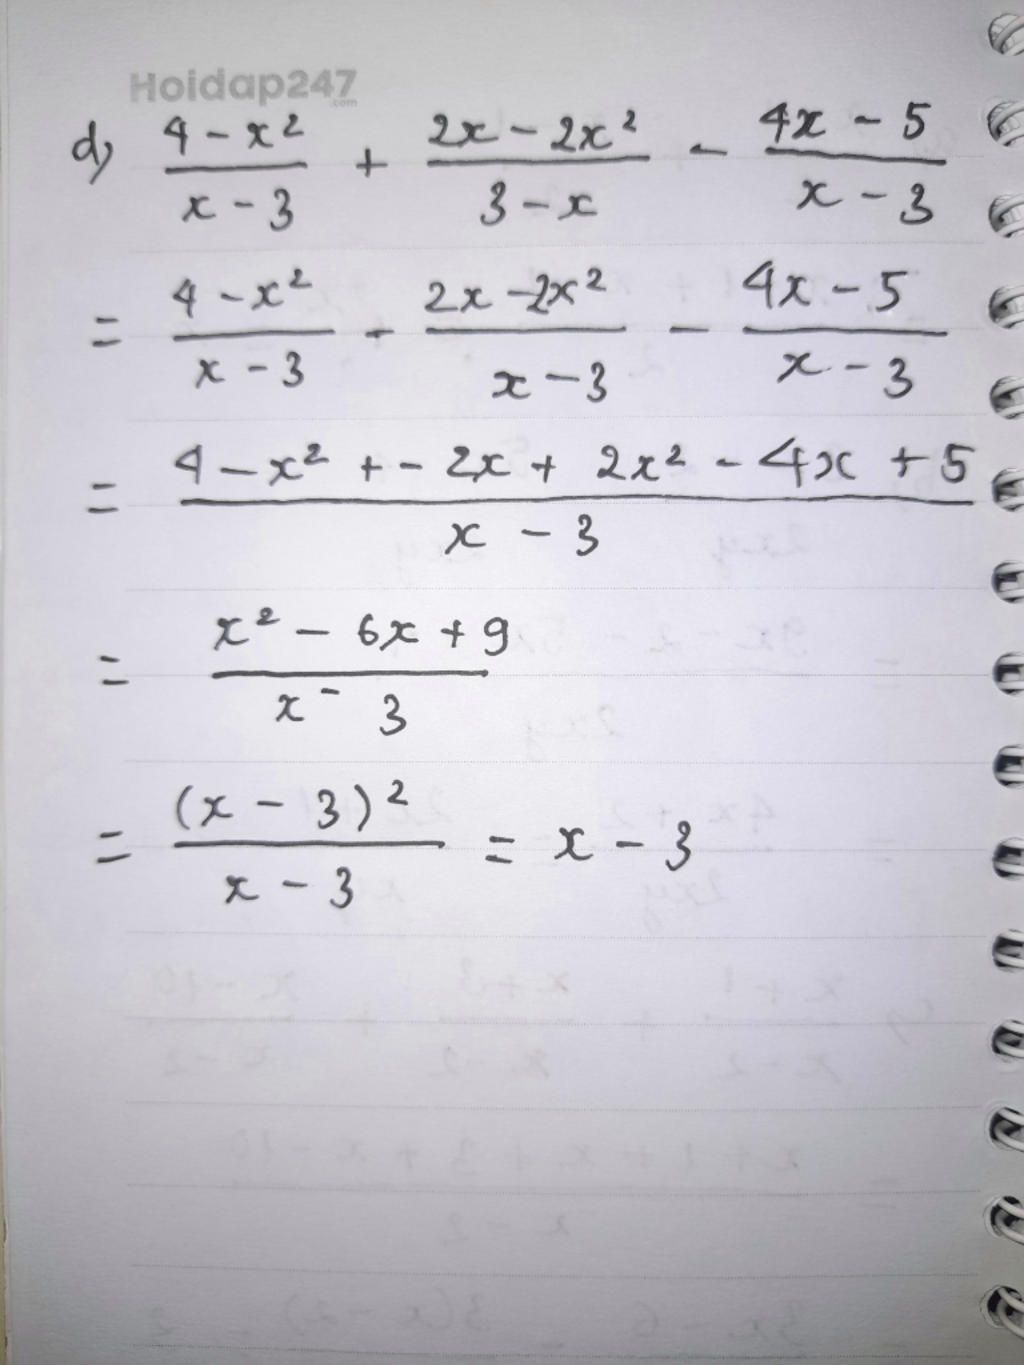 Hoidap247
.com
d) \frac{4 - x^2}{x - 3} + \frac{2x - 2x^2}{3 - x} - \frac{4x - 5}{x - 3}
= \frac{4 - x^2}{x - 3} - \frac{2x - 2x^2}{x - 3} - \frac{4x - 5}{x - 3}
= \frac{4 - x^2 + - 2x + 2x^2 - 4x + 5}{x - 3}
= \frac{x^2 - 6x + 9}{x - 3}
= \frac{(x - 3)^2}{x - 3} = x - 3